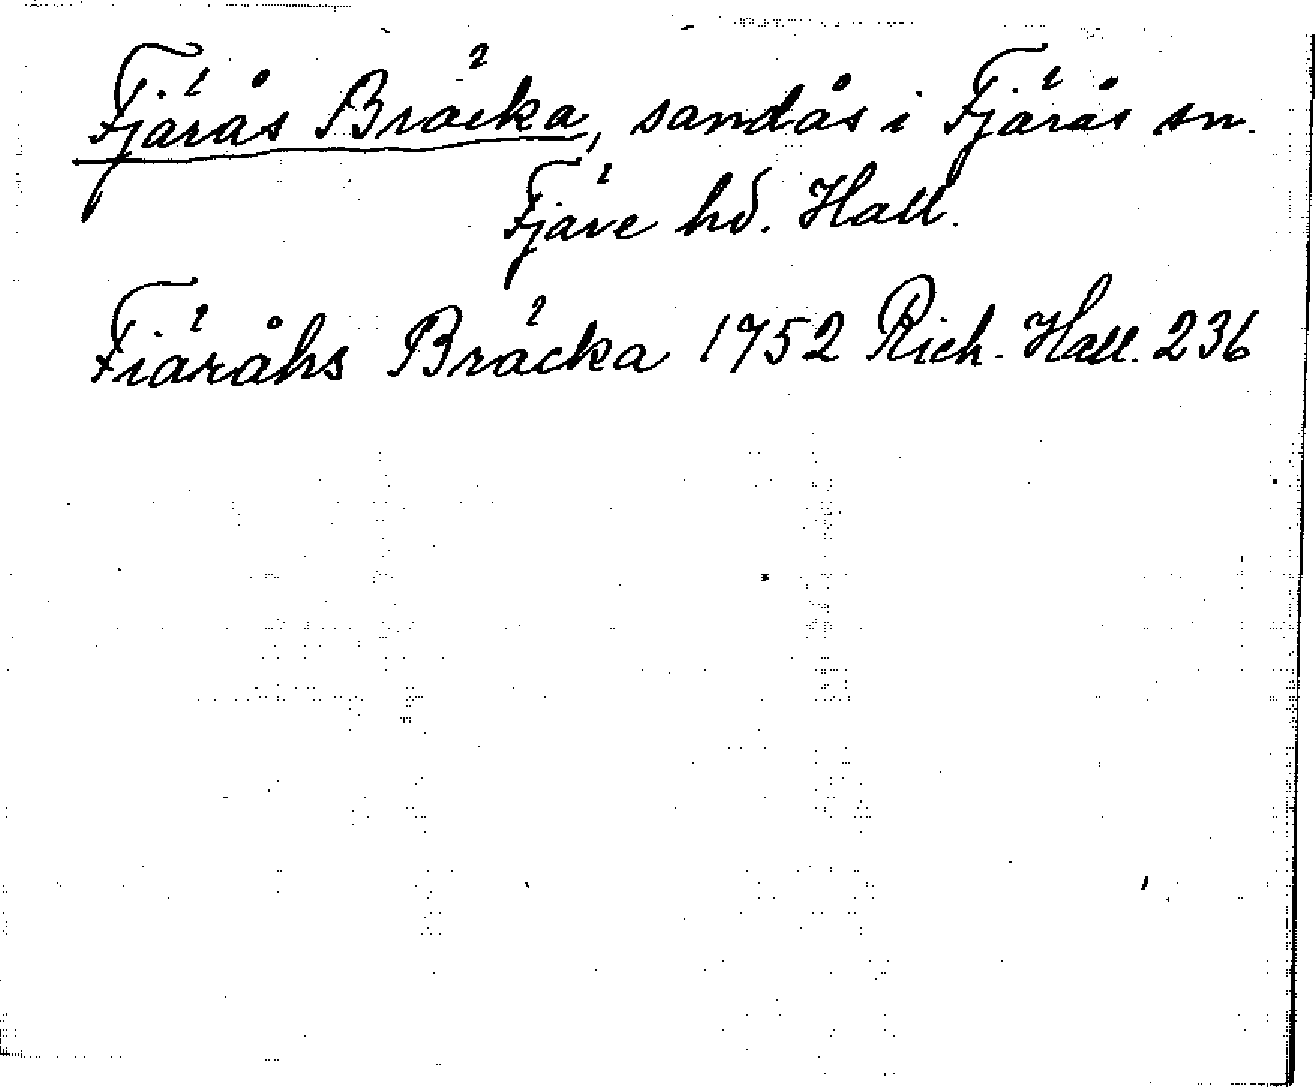 Fjärås Bräcka, sandås i Fjärås sn.
Fjäre hd. Hall.
Fiäråhs Bräcka 1752 Rich. Hall. 236